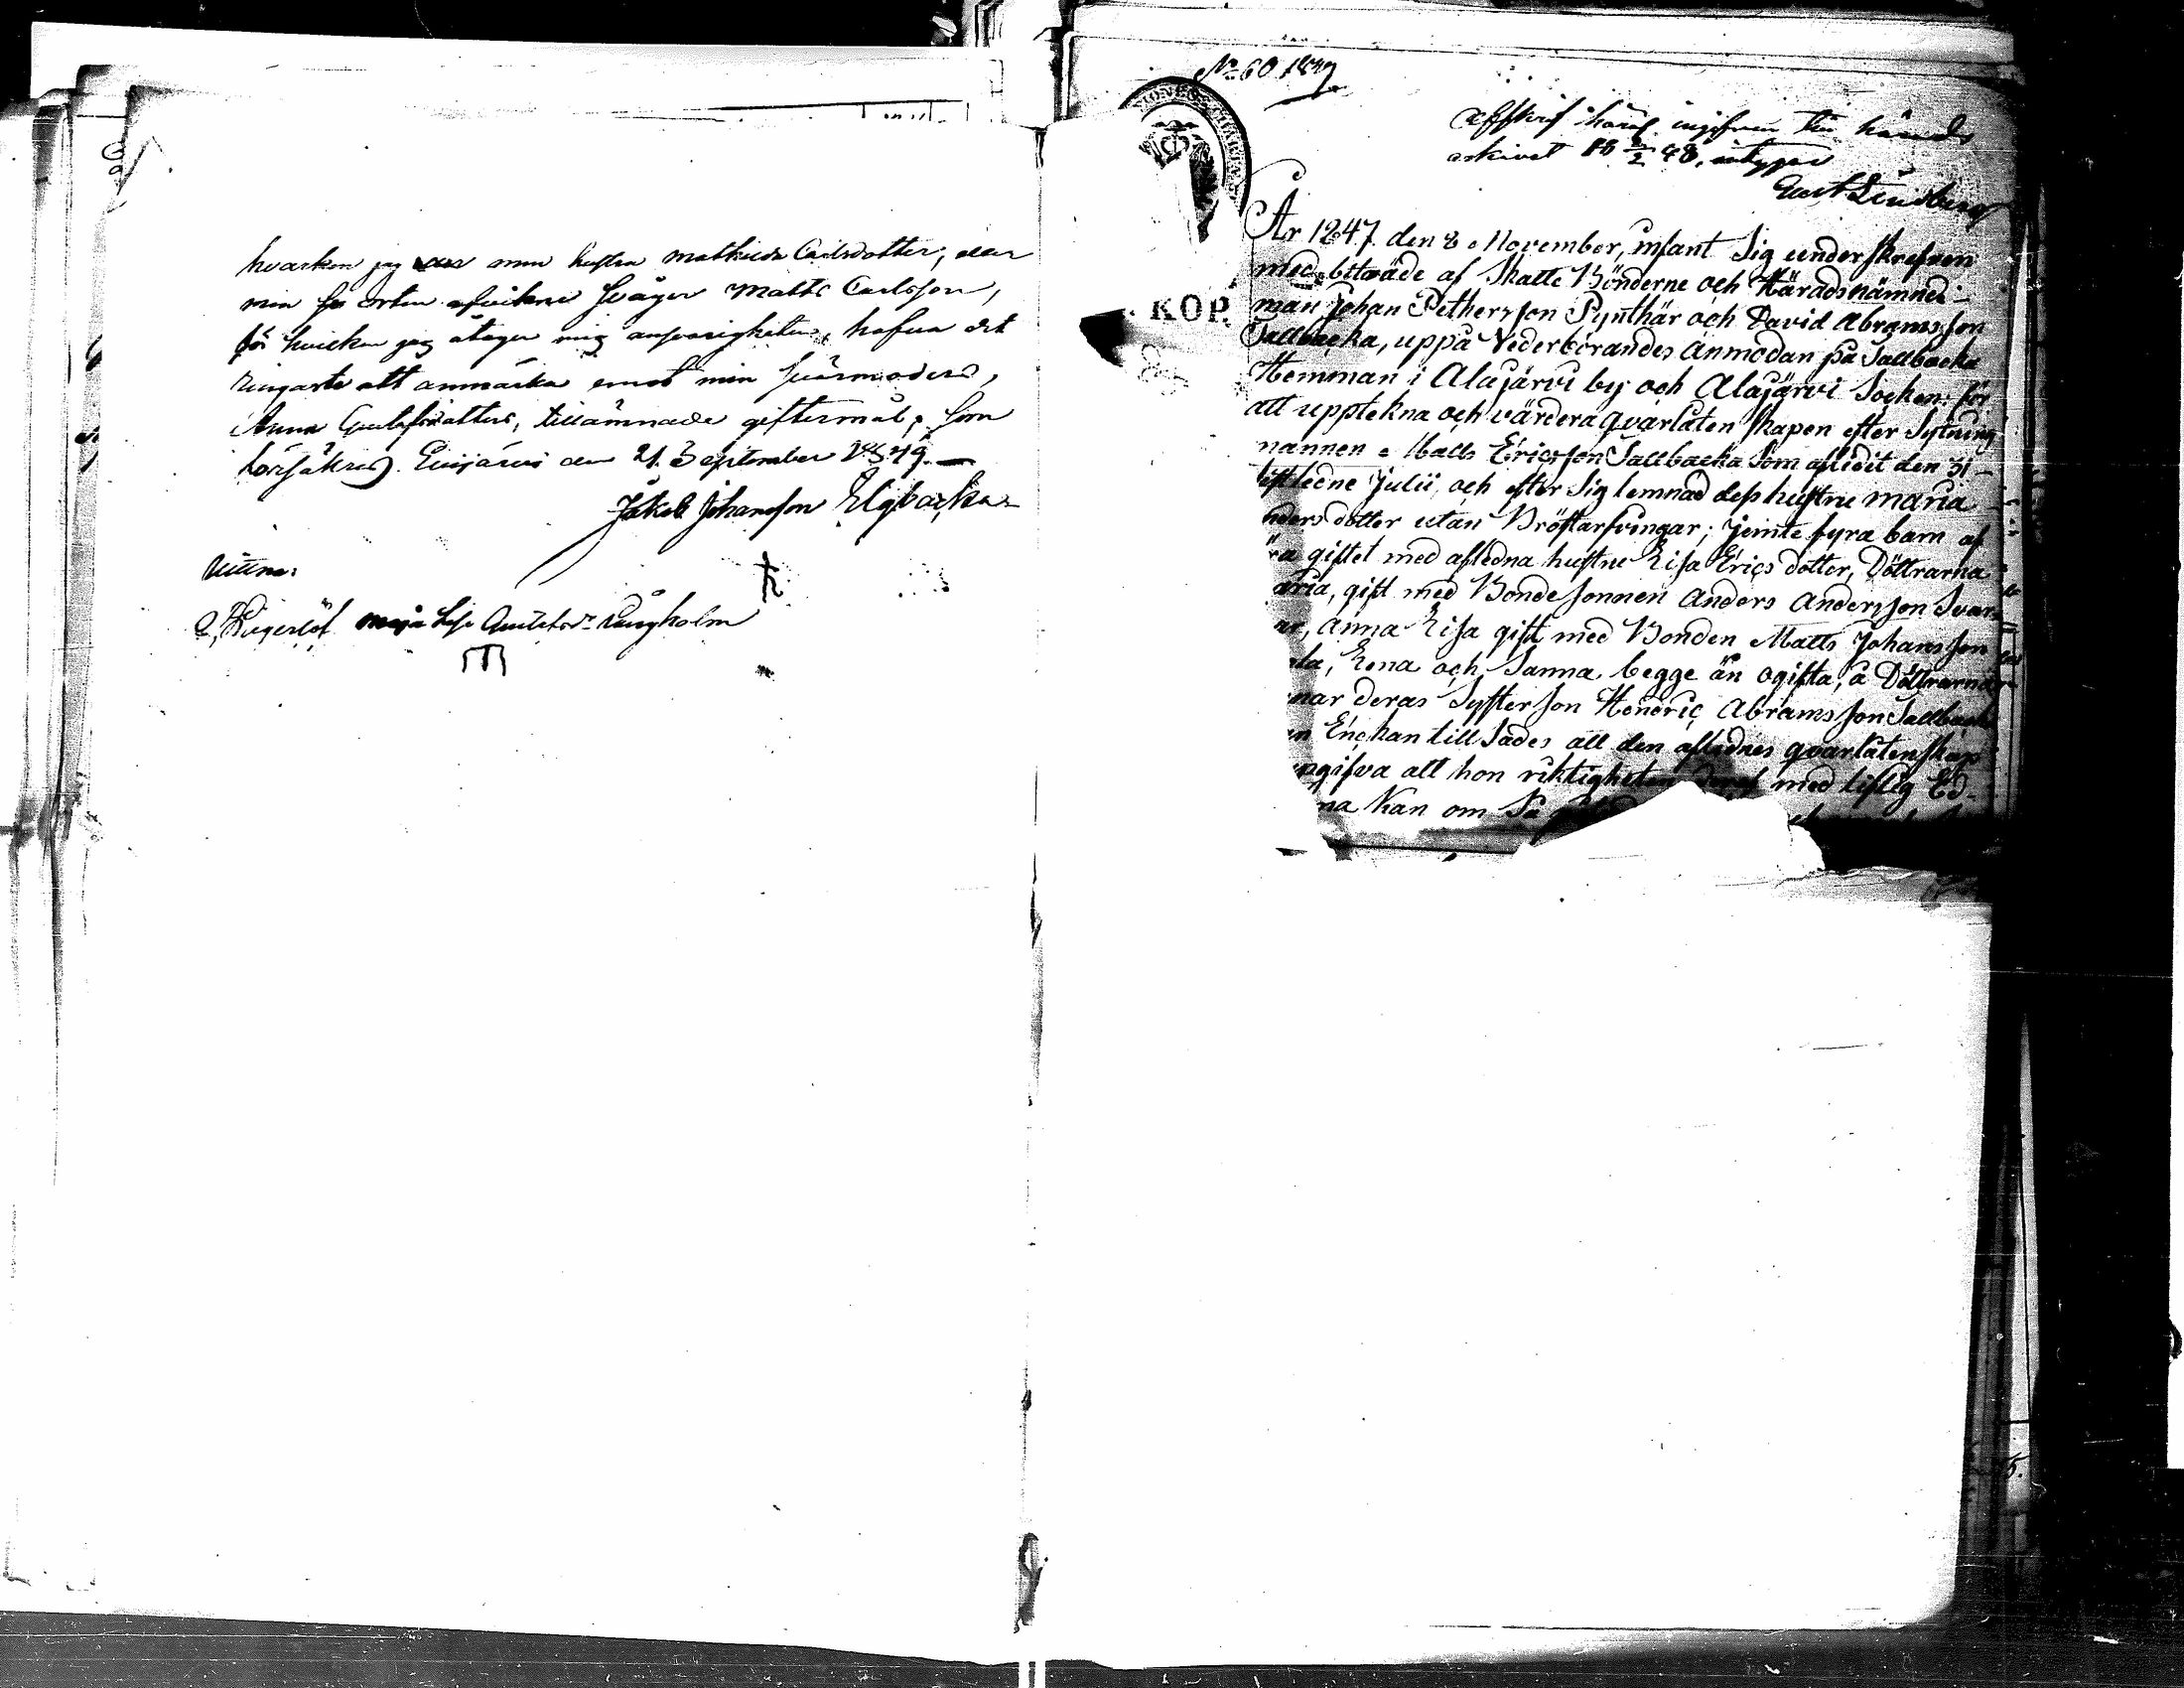 hvarken jag min hustru Mathilda Carlsdotter, eller
min orten afvikne Svåger Matts Carlsson,
för hvilken jag åtager mig ansvarigheten, hafva det
ringaste att anmärka emot min Svärmoders,
Anna Gustafsdotters, tillämnade giftermål; Som
försäkras. Evijärvi den 21 September 1849.
Jakob Johansson Elgbacka
Vittna:
Maja Lisa Gustafsdr
No 60 1847
Affskrift häraf ingifven till härads
arkivet 18 2/2 48, intygar
Gust Lindberg
År 1847 den 8 November, infant Sig underskrefven
med biträde af Skatte Bönderne och Häradsnämnde-
man Johan Pethersson Pynthär och David Abramsson
Sallbacka, uppå Vederbörandes Anmodan på Sallbacka
KOP.
Hemman i Alajärvi by och Alajärvi Socken; för
att upptekna och värdera qvarlåtenskapen efter Sytning
mannen Matts Ericsson Sallbacka Som aflidit den 31
sistledne Julii, och efter Sig lemnad dess hustru Maria
nders dotter utan Bröstarfvingar; jemte fyra barn af
ra giftet med afledna hustru Lisa Erics dotter, Döttrarna
aria, gift med Bondesonnen Anders Andersson Svar
ar, Anna Lisa gift med Bonden Matts Johansson
la, Lena och Sanna, begge än ogifta, å Döttrarnas
nar deras Systerson Henric Abramsson Sallbacka
n Enckan till Sades att den aflednes qvarlåtenskap
pgifva att hon riktigheten deraf med liflig Ed
na Kan om Så